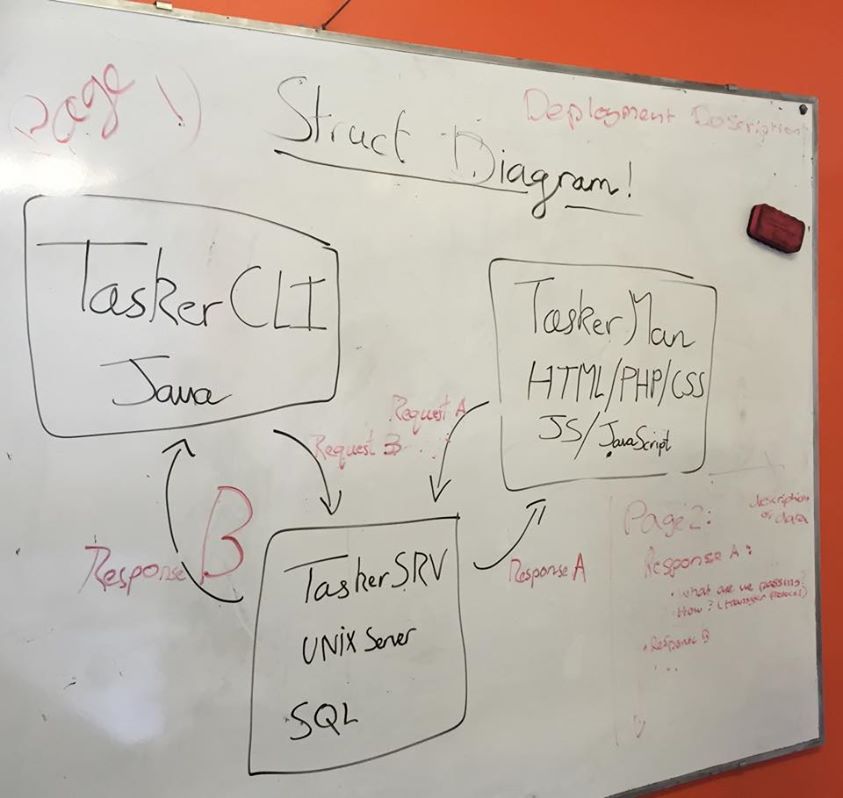 Page 1)
Struct Diagram!
Deployment Description
TaskerCLI
Java
TaskerMan
HTML/PHP/CSS
JS/JavaScript
Request A
Request B
Response B
Response A
TaskerSRV
UNIX Server
SQL
Page 2:
description
of data
Response A:
• what are we passing?
How? (transfer protocol)
• Response B
• . .